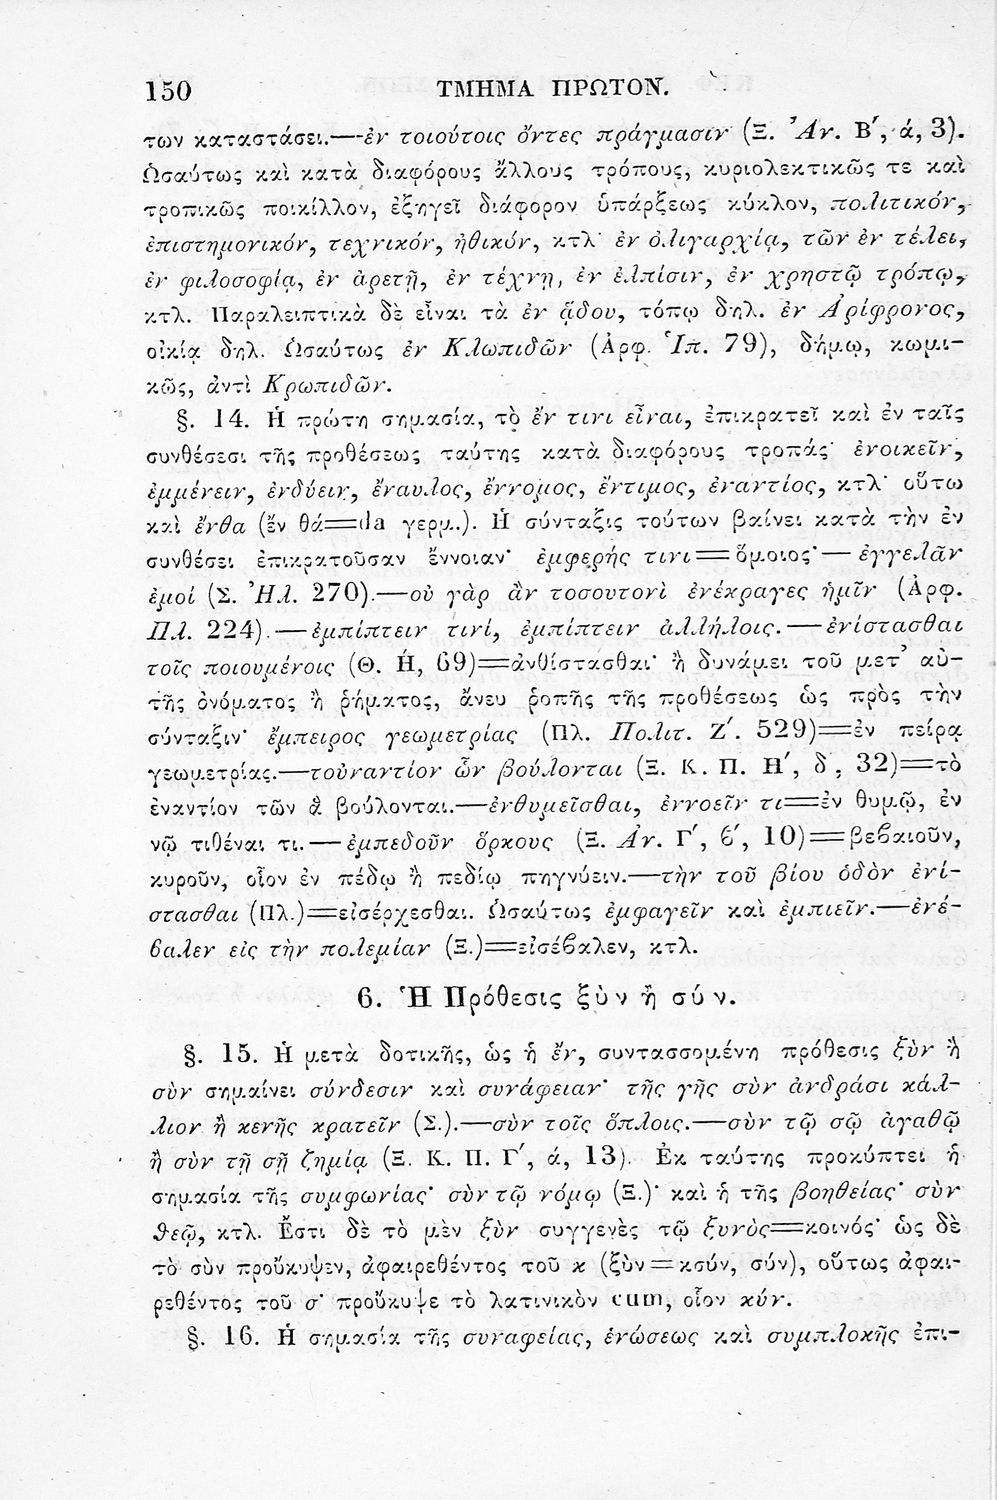 150 ΤΜΗΜΑ ΠΡΩΤΟΝ.
των καταστάσει.—ἐν τοιούτοις ὄντες πράγμασιν (Ξ. Ἀν. Β΄, ά, 3).
Ὡσαύτως καὶ κατὰ διαφόρους ἄλλους τρόπους, κυριολεκτικῶς τε καὶ
τροπικῶς ποικίλλον, ἐξηγεῖ διάφορον ὑπάρξεως κύκλον, πολιτικόν,
ἐπιστημονικόν, τεχνικόν, ἠθικόν, κτλ· ἐν ὀλιγαρχίᾳ, τῶν ἐν τέλει,
ἐν φιλοσοφίᾳ, ἐν ἀρετῇ, ἐν τέχνῃ, ἐν ἐλπίσιν, ἐν χρηστῷ τρόπῳ,
κτλ. Παραλειπτικὰ δὲ εἶναι τὰ ἐν ᾅδου, τόπῳ δηλ. ἐν Ἀρίφρονος,
οἰκίᾳ δηλ. Ὡσαύτως ἐν Κλωπιδῶν (Ἀρφ. Ἱπ. 79), δήμῳ, κωμι-
κῶς, ἀντὶ Κρωπιδῶν.
§. 14. Ἡ πρώτη σημασία, τὸ ἔν τινι εἶναι, ἐπικρατεῖ καὶ ἐν ταῖς
συνθέσεσι τῆς προθέσεως ταύτης κατὰ διαφόρους τροπάς· ἐνοικεῖν,
ἐμμένειν, ἐνδύειν, ἔναυλος, ἔννομος, ἔντιμος, ἐναντίος, κτλ· οὕτω
καὶ ἔνθα (ἔν θά=da γερμ.). Ἡ σύνταξις τούτων βαίνει κατὰ τὴν ἐν
συνθέσει ἐπικρατοῦσαν ἔννοιαν· ἐμφερής τινι=ὅμοιος·—ἐγγελᾶν
ἐμοί (Σ. Ἠλ. 270).—οὐ γὰρ ἂν τοσουτονὶ ἐνέκραγες ἡμῖν (Ἀρφ.
Πλ. 224).—ἐμπίπτειν τινί, ἐμπίπτειν ἀλλήλοις.—ἐνίστασθαι
τοῖς ποιουμένοις (Θ. Ἡ, 69)=ἀνθίστασθαι· ἢ δυνάμει τοῦ μετ' αὐ-
τῆς ὀνόματος ἢ ῥήματος, ἄνευ ῥοπῆς τῆς προθέσεως ὡς πρὸς τὴν
σύνταξιν· ἔμπειρος γεωμετρίας (Πλ. Πολιτ. Ζ΄. 529)=ἐν πείρᾳ
γεωμετρίας.—τοὐναντίον ὧν βούλονται (Ξ. Κ. Π. Η΄, δ΄, 32)=τὸ
ἐναντίον τῶν ἃ βούλονται.—ἐνθυμεῖσθαι, ἐννοεῖν τι=ἐν θυμῷ, ἐν
νῷ τιθέναι τι.—ἐμπεδοῦν ὅρκους (Ξ. Ἀν. Γ΄, ϐ΄, 10)=βεϐαιοῦν,
κυροῦν, οἷον ἐν πέδῳ ἢ πεδίῳ πηγνύειν.—τὴν τοῦ βίου ὁδὸν ἐνί-
στασθαι (Πλ.)=εἰσέρχεσθαι. Ὡσαύτως ἐμφαγεῖν καὶ ἐμπιεῖν.—ἐνέ-
ϐαλεν εἰς τὴν πολεμίαν (Ξ.)=εἰσέϐαλεν, κτλ.
6. Ἡ Πρόθεσις ξὺν ἢ σύν.
§. 15. Ἡ μετὰ δοτικῆς, ὡς ἡ ἔν, συντασσομένη πρόθεσις ξὺν ἢ
σὺν σημαίνει σύνδεσιν καὶ συνάφειαν· τῆς γῆς σὺν ἀνδράσι κάλ-
λιον ἢ κενῆς κρατεῖν (Σ.).—σὺν τοῖς ὅπλοις.—σὺν τῷ σῷ ἀγαθῷ
ἢ σὺν τῇ σῇ ζημίᾳ (Ξ. Κ. Π. Γ΄, ά, 13). Ἐκ ταύτης προκύπτει ἡ
σημασία τῆς συμφωνίας· σὺν τῷ νόμῳ (Ξ.)· καὶ ἡ τῆς βοηθείας· σὺν
ϑεῷ, κτλ. Ἔστι δὲ τὸ μὲν ξὺν συγγενὲς τῷ ξυνὸς=κοινός· ὡς δὲ
τὸ σὺν προὔκυψεν, ἀφαιρεθέντος τοῦ κ (ξὺν=κσύν, σύν), οὕτως ἀφαι-
ρεθέντος τοῦ σ· προὔκυψε τὸ λατινικὸν cum, οἷον κύν.
§. 16. Ἡ σημασία τῆς συναφείας, ἑνώσεως καὶ συμπλοκῆς ἐπι-